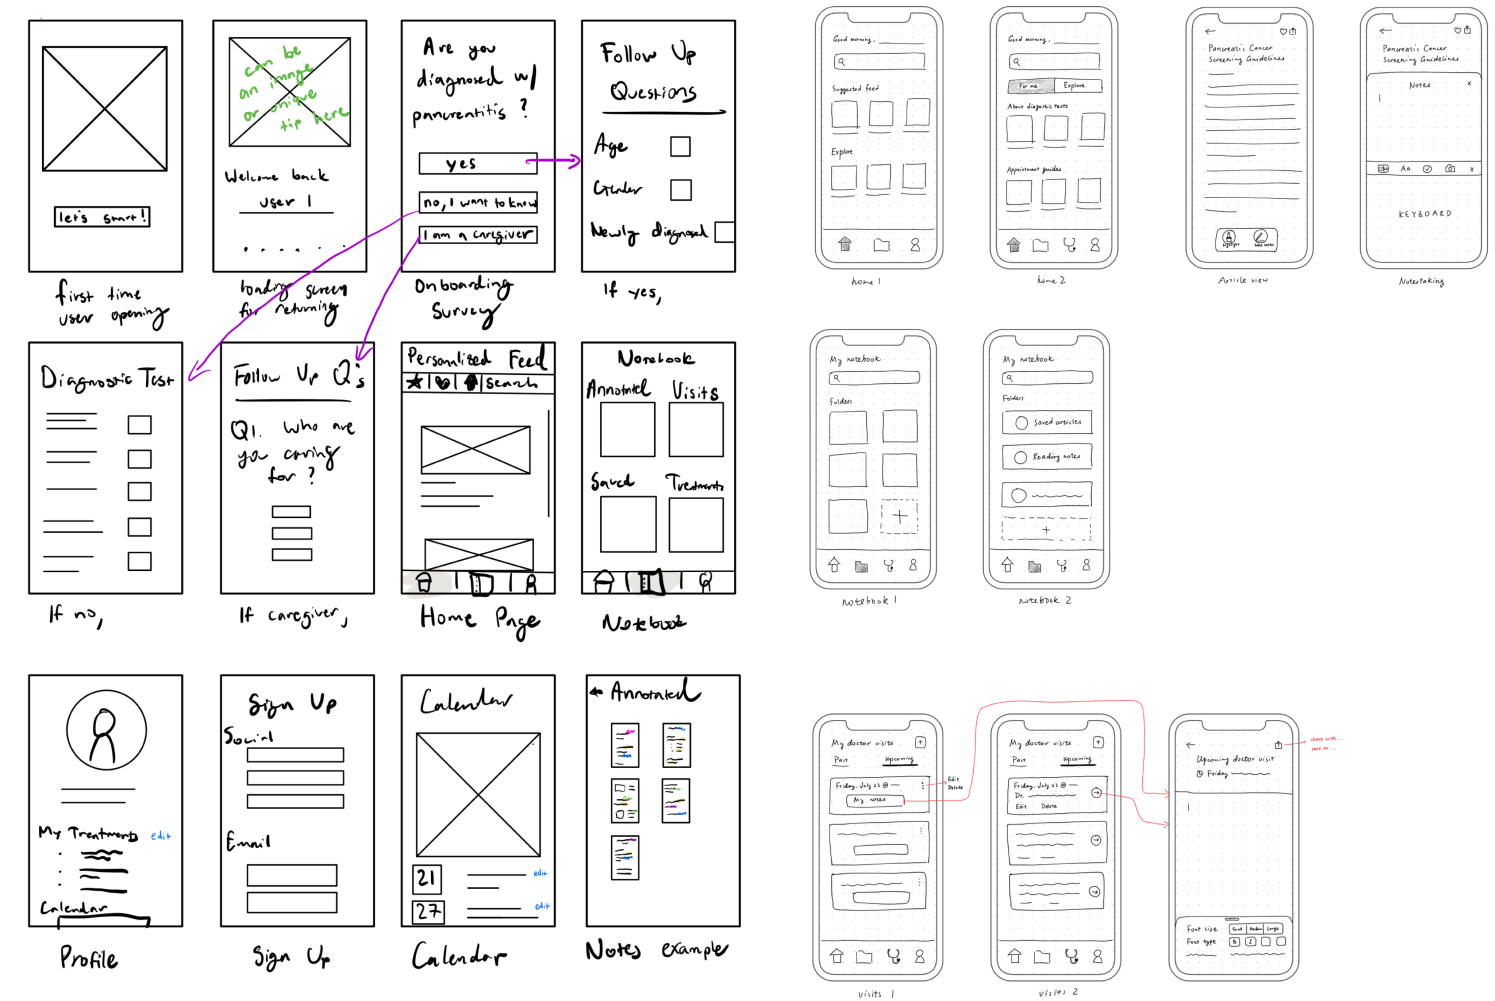 let's start!
first time
user opening
can be
an image
or unique
tip here
Welcome back
user 1
loading screen
for returning
Are you
diagnosed w/
pancreatitis ?
yes
no, I want to know
I am a caregiver
Onboarding
Survey
Follow Up
Questions
Age
Gender
Newly diagnosed
If yes,
Diagnostic Test
If no,
Follow Up Q's
Q1. Who are
you caring
for ?
If caregiver,
Personalized Feed
search
Home Page
Notebook
Annotated Visits
Saved Treatments
Notebook
My Treatments edit
Calendar
Profile
Sign Up
Social
Email
Sign Up
Calendar
21 edit
27 edit
Calendar
Annotated
Notes example
Good morning,
Suggested feed
Explore
home 1
Good morning,
For me Explore
About diagnostic tests
Appointment guides
home 2
Pancreatic Cancer
Screening Guidelines
highlight take notes
Article view
Pancreatic Cancer
Screening Guidelines
Notes x
Aa x
KEYBOARD
Notestaking
My notebook
Folders
+
notebook 1
My notebook
Folders
Saved articles
Reading notes
+
notebook 2
My doctor visits +
Past Upcoming
Friday, July 23 @
My notes
Edit
Delete
visits 1
My doctor visits +
Past Upcoming
Friday, July 23 @
Dr.
Edit Delete
visits 2
share with...
save to...
Upcoming doctor visit
Friday
Font size Small Medium Large
Font type B I